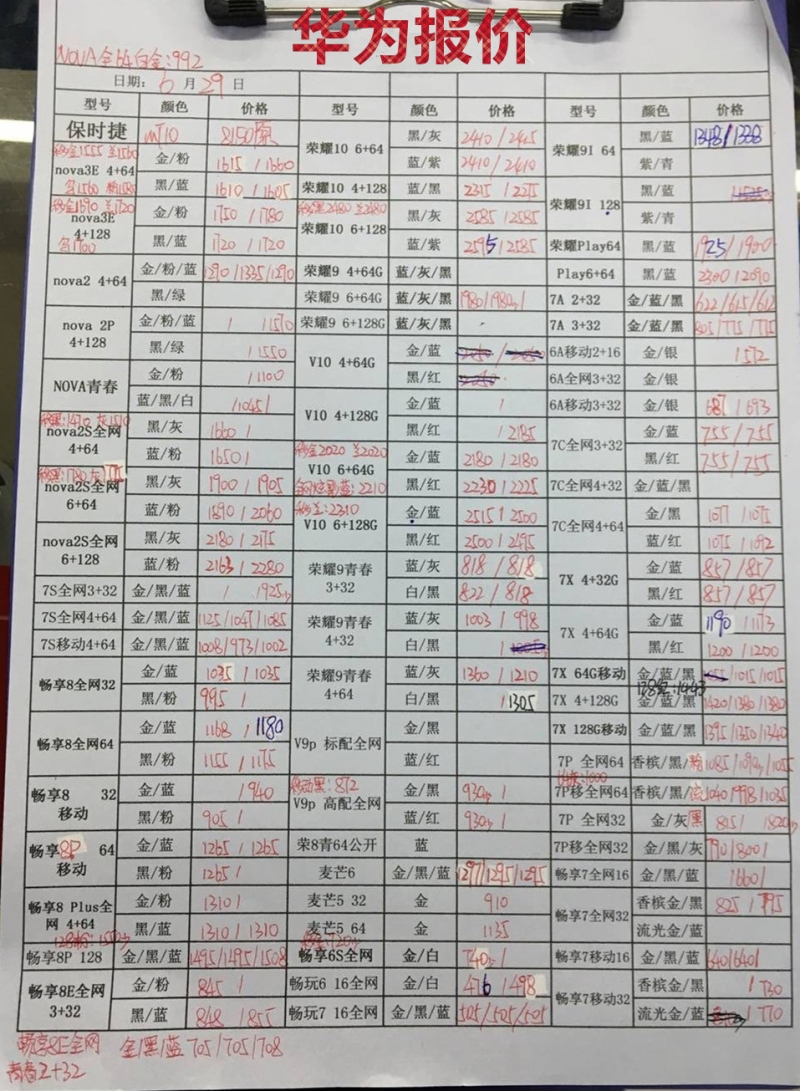 华为报价
NOVA全64白金:992
日期: 6 月 29 日
型号 颜色 价格 型号 颜色 价格 型号 颜色 价格
保时捷 MT10 8150原 荣耀10 6+64 黑/灰 2410/2415 荣耀9I 64 黑/蓝 1348/1338
nova3E 4+64 金/粉 1615/1660 蓝/紫 2410/2410 紫/青
黑/蓝 1610/1605 荣耀10 4+128 蓝/黑 2315/2275 荣耀9I 128 黑/蓝
nova3E 4+128 金/粉 1750/1780 荣耀10 6+128 黑/灰 2585/2585 紫/青
黑/蓝 1720/1720 蓝/紫 2595/2585 荣耀Play64 黑/蓝 1925/1900
nova2 4+64 金/粉/蓝 1290/1335/1290 荣耀9 4+64G 蓝/灰/黑 Play6+64 黑/蓝 2300/2090
黑/绿 荣耀9 6+64G 蓝/灰/黑 7A 2+32 金/蓝/黑 622/615/612
nova 2P 4+128 金/粉/蓝 / /1570 荣耀9 6+128G 蓝/灰/黑 7A 3+32 金/蓝/黑 805/775/775
黑/绿 /1550 V10 4+64G 金/蓝 6A移动2+16 金/银 /572
NOVA青春 金/粉 /1100 黑/红 6A全网3+32 金/银
蓝/黑/白 /1045/ V10 4+128G 金/蓝 / 6A移动3+32 金/银 687/693
nova2S全网 4+64 黑/灰 1660/ 黑/红 /2185 7C全网3+32 金/蓝 755/755
蓝/粉 1650/ V10 6+64G 金/蓝 2180/2180 黑/红 755/755
nova2S全网 6+64 黑/灰 1900/1905 黑/红 2230/2225 7C全网4+32 金/蓝/黑
蓝/粉 1890/2060 V10 6+128G 金/蓝 2515/2500 7C全网4+64 金/黑 1077/1075
nova2S全网 6+128 黑/灰 2180/2175 黑/红 2500/2495 蓝/红 1075/1092
蓝/粉 2163/2280 荣耀9青春 3+32 蓝/灰 818/818 7X 4+32G 金/蓝 857/857
7S全网3+32 金/黑/蓝 白/黑 822/818 黑/红 857/857
7S全网4+64 金/黑/蓝 1125/1047/1085 荣耀9青春 4+32 蓝/灰 1003/998 7X 4+64G 金/蓝 1190/1173
7S移动4+64 金/黑/蓝 1008/973/1002 白/黑 黑/红 1200/1200
畅享8全网32 金/蓝 1035/1035 荣耀9青春 4+64 蓝/灰 1360/1210 7X 64G移动 金/蓝/黑 /1015/1015
黑/粉 995/ 白/黑 /1305 7X 4+128G 金/蓝/黑 1420/1380/1380
畅享8全网64 金/蓝 1168/1180 V9p 标配全网 金/黑 7X 128G移动 金/蓝/黑 1395/1350/1340
黑/粉 1155/1175 蓝/红 7P 全网64 香槟/黑/粉
畅享8 32 移动 金/蓝 /940 移动黑:872 V9p 高配全网 金/黑 7P移全网64 香槟/黑/ 1040/998/1035
黑/粉 905/ 蓝/红 7P 全网32 金/灰黑
畅享8P 64 移动 金/蓝 1265/1265 荣8青64公开 蓝 7P移全网32 金/黑/灰 790/800/
黑/粉 1265/ 麦芒6 金/黑/蓝 1297/1295/1295 畅享7全网16 金/黑/蓝 /660/
畅享8 Plus全网 4+64 金/粉 1310/ 麦芒5 32 金 910 畅享7全网32 香槟金/黑 825/795
黑/蓝 1310/1310 麦芒5 64 金 1135 流光金/蓝
畅享8P 128 金/黑/蓝 1495/1495/1508 畅享6S全网 金/白 畅享7移动16 金/黑/蓝 640/640/
畅享8E全网 3+32 金/粉 845/ 畅玩6 16全网 金/白 476/498 畅享7移动32 香槟金/黑 /730
黑/蓝 848/855 畅玩7 16全网 金/黑/蓝 505/505/505 流光金/蓝 /770
畅享8E全网 金/黑/蓝 705/705/708
青春2+32